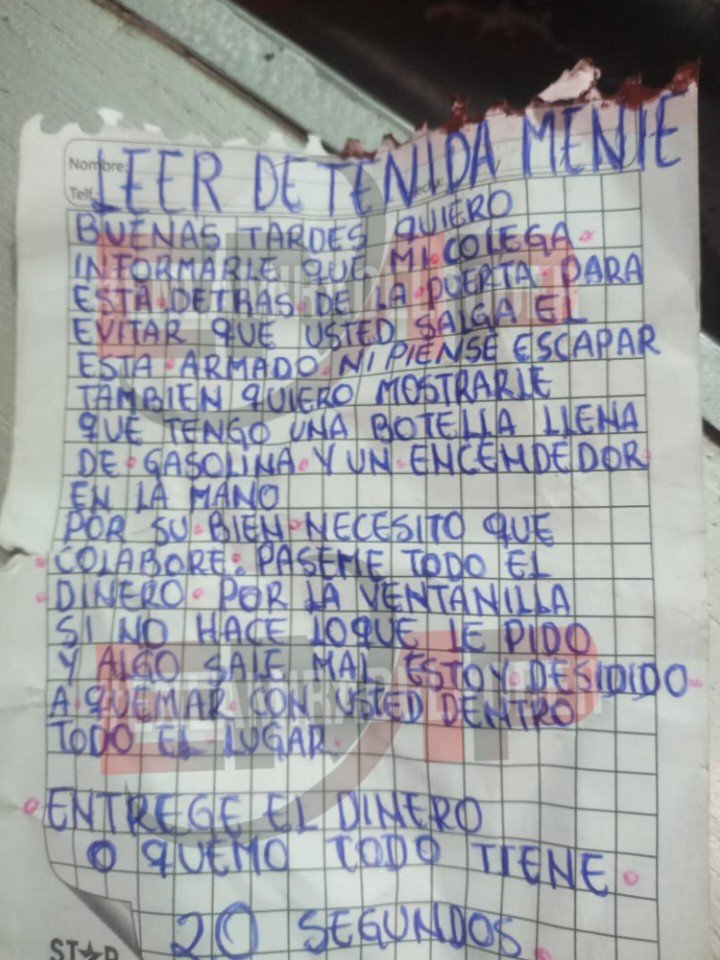 Nombre:
Telf.
LEER DETENIDA MENTE
BUENAS TARDES QUIERO
INFORMARLE QUE MI COLEGA
ESTA DETRAS DE LA PUERTA PARA
EVITAR QUE USTED SALGA EL
ESTA ARMADO NI PIENSE ESCAPAR
TAMBIEN QUIERO MOSTRARLE
QUE TENGO UNA BOTELLA LLENA
DE GASOLINA Y UN ENCEMDEDOR
EN LA MANO
POR SU BIEN NECESITO QUE
COLABORE. PASEME TODO EL
DINERO POR LA VENTANILLA
SI NO HACE LO QUE LE PIDO
Y ALGO SALE MAL ESTOY DESIDIDO
A QUEMAR CON USTED DENTRO
TODO EL LUGAR
ENTREGE EL DINERO
O QUEMO TODO TIENE
20 SEGUNDOS